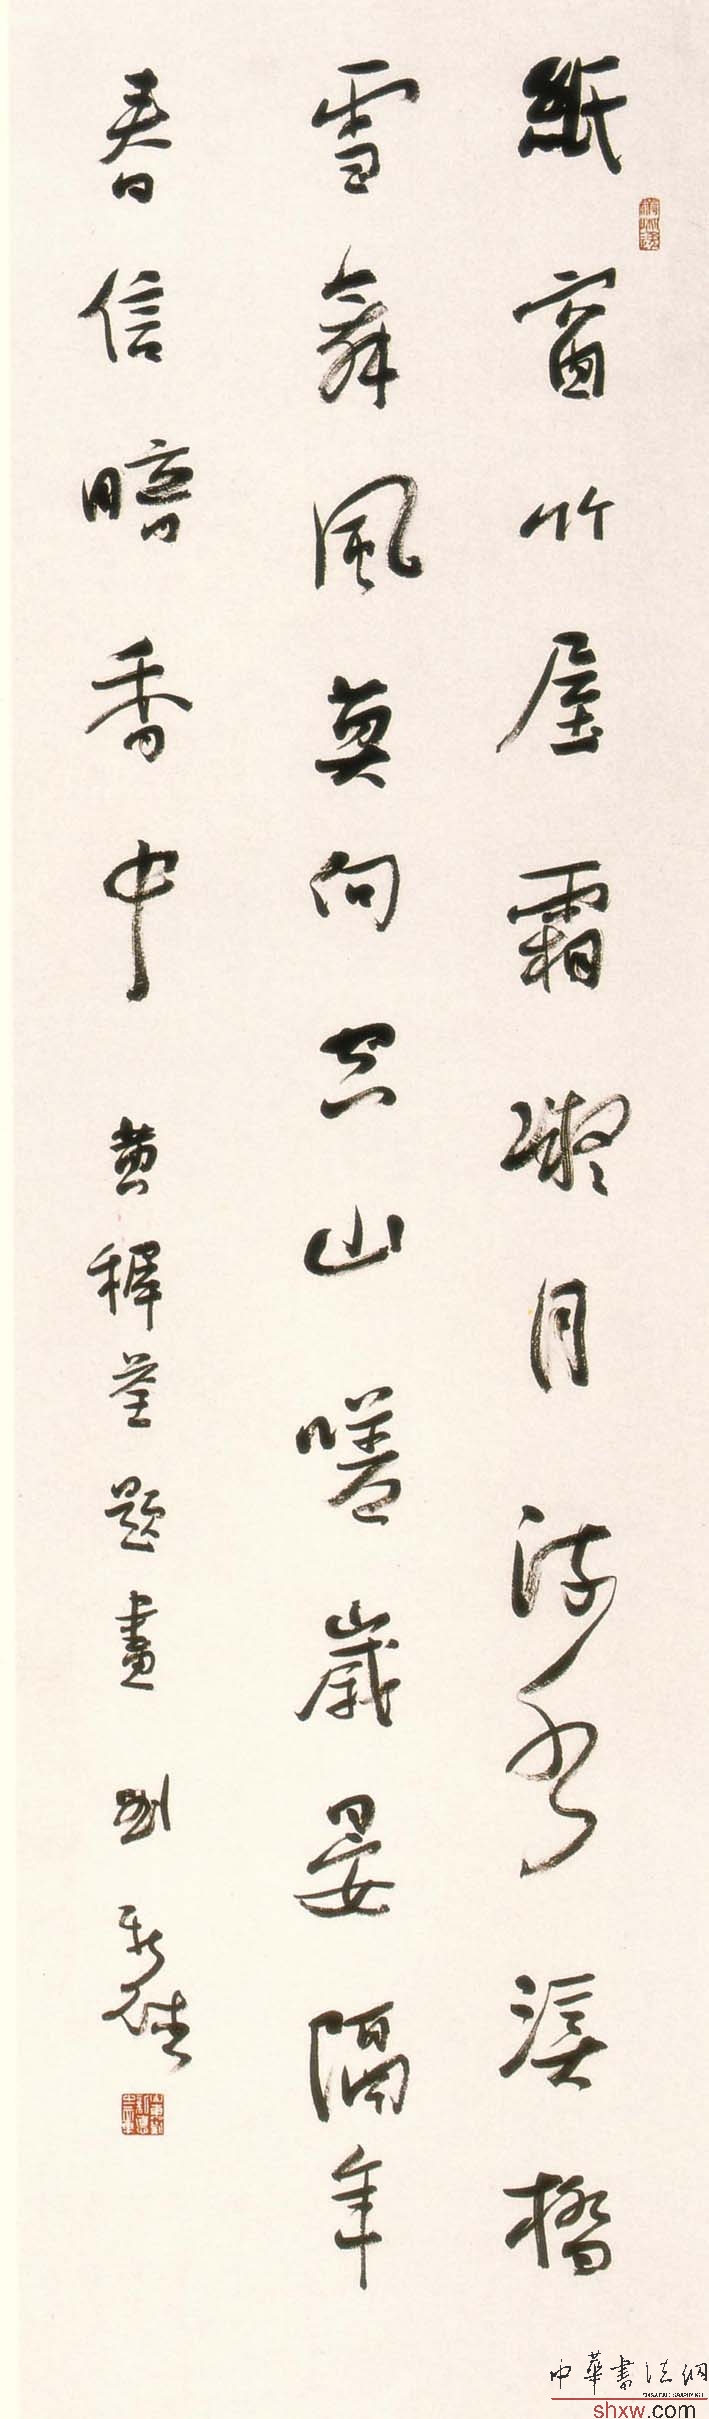 紙窗竹屋霜凝月流水渠橋
雪舞風莫向空山嗟歲晏隔年
春信暗香中 黄稺荃題畫 劉新德
中華書法網
shxw.com